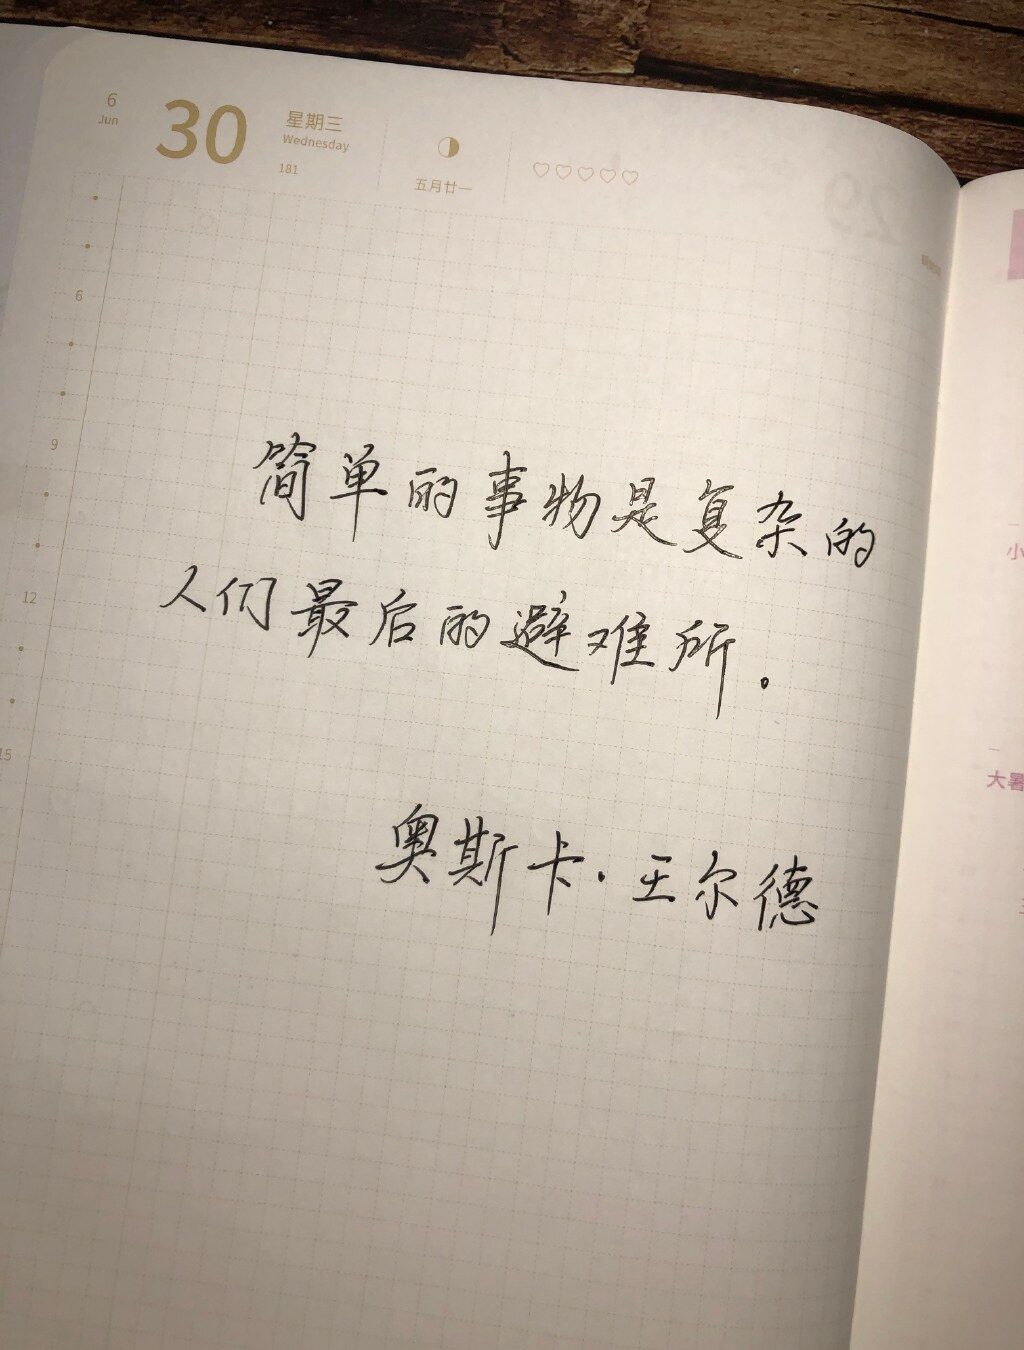 6
Jun
30
星期三
Wednesday
181
五月廿一
29
6
9
12
15
简单的事物是复杂的
人们最后的避难所。
奥斯卡·王尔德
小
大暑